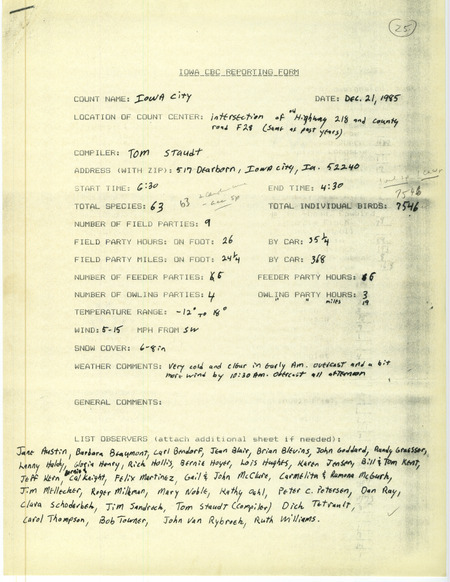 25
IOWA CBC REPORTING FORM
COUNT NAME: Iowa City DATE: Dec. 21, 1985
LOCATION OF COUNT CENTER: intersection of old Highway 218 and county
road F28 (same as past years)
COMPILER: Tom Staudt
ADDRESS (WITH ZIP): 517 Dearborn, Iowa City, Ia. 52240
START TIME: 6:30 END TIME: 4:30
7546
TOTAL SPECIES: 63 63 TOTAL INDIVIDUAL BIRDS: 7546
NUMBER OF FIELD PARTIES: 9
FIELD PARTY HOURS: ON FOOT: 26 BY CAR: 35 1/4
FIELD PARTY MILES: ON FOOT: 24 1/4 BY CAR: 368
NUMBER OF FEEDER PARTIES: 5 FEEDER PARTY HOURS: 5
NUMBER OF OWLING PARTIES: 4 OWLING PARTY HOURS: 3
" " miles 19
TEMPERATURE RANGE: -12° to 18°
WIND: 5-15 MPH FROM SW
SNOW COVER: 6-8 in
WEATHER COMMENTS: Very cold and clear in early Am. Overcast and a bit
more wind by 10:30 Am. Overcast all afternoon
GENERAL COMMENTS:
LIST OBSERVERS (attach additional sheet if needed):
Jane Austin, Barbara Beaumont, Carl Bendorf, Jean Blair, Brian Blevins, John Goddard, Randy Graesser,
Gloria Henry, Rich Hollis, Bernie Hoyer, Lois Hughts, Karen Jensen, Bill & Tom Kent,
Jeff Kern, Cal Knight, Felix Martinez, Gail & John McClure, Carmelita & Ramona McGurk,
Jim McLlecker, Roger Milkman, Mary Noble, Kathy Oahl, Peter C. Petersen, Dan Ray,
Clara Schoderbek, Jim Sandrock, Tom Staudt (Compiler) Dick Tetrault,
Carol Thompson, Bob Towner, John Van Rybroek, Ruth Williams.